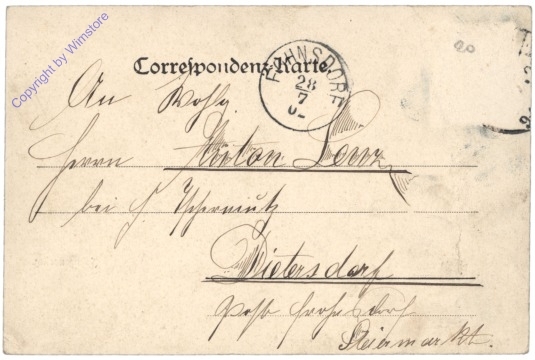 Copyright by Wimstore
20
Correspondenz-Karte.
FOHNSDORF
28
7
An Wohlg.
Herrn Anton Lenz
bei H
Dietersdorf
Post Fohnsdorf
Steiermark.